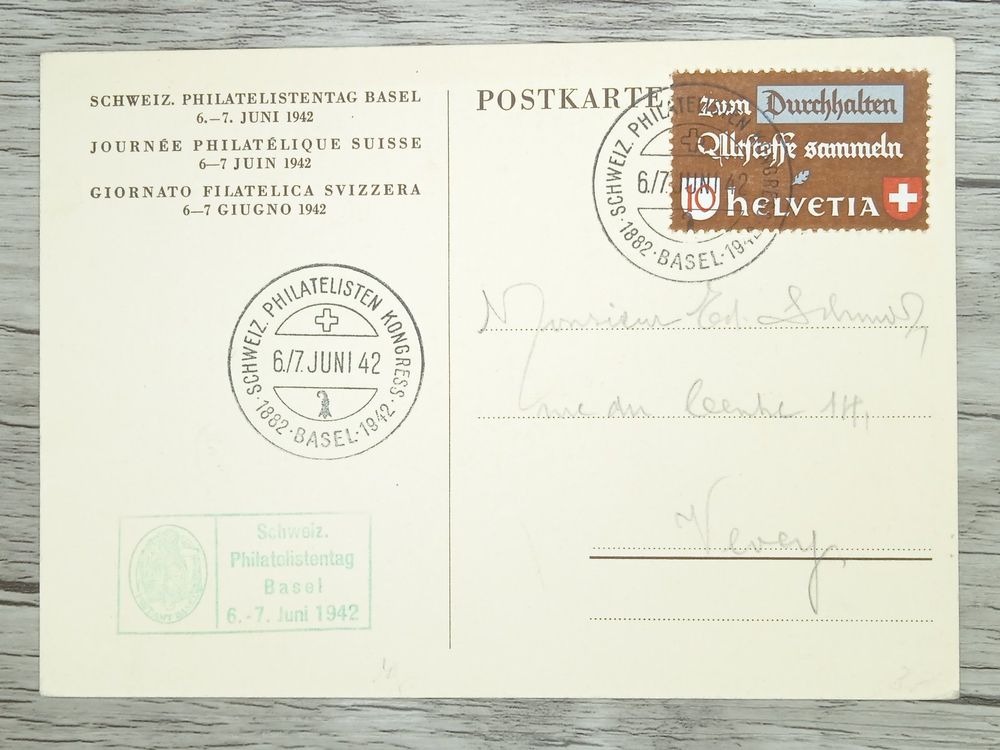 SCHWEIZ. PHILATELISTENTAG BASEL
6.—7. JUNI 1942
JOURNÉE PHILATÉLIQUE SUISSE
6—7 JUIN 1942
GIORNATO FILATELICA SVIZZERA
6—7 GIUGNO 1942
POSTKARTE
Zum Durchhalten
Altstoffe sammeln
10 HELVETIA
SCHWEIZ. PHILATELISTEN KONGRESS
6./7. JUNI 42
· 1882 · BASEL · 1942 ·
Monsieur Ed. Schmid,
rue du Centre 14,
Vevey.
SCHWEIZ. PHILATELISTEN KONGRESS
6./7. JUNI 42
· 1882 · BASEL · 1942 ·
Schweiz.
Philatelistentag
Basel
6. - 7. Juni 1942